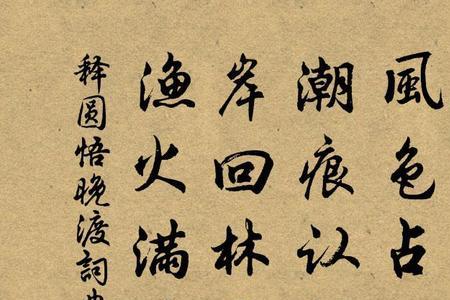 風色占
潮痕认
岸回林
漁火满
释圆悟晚渡詞